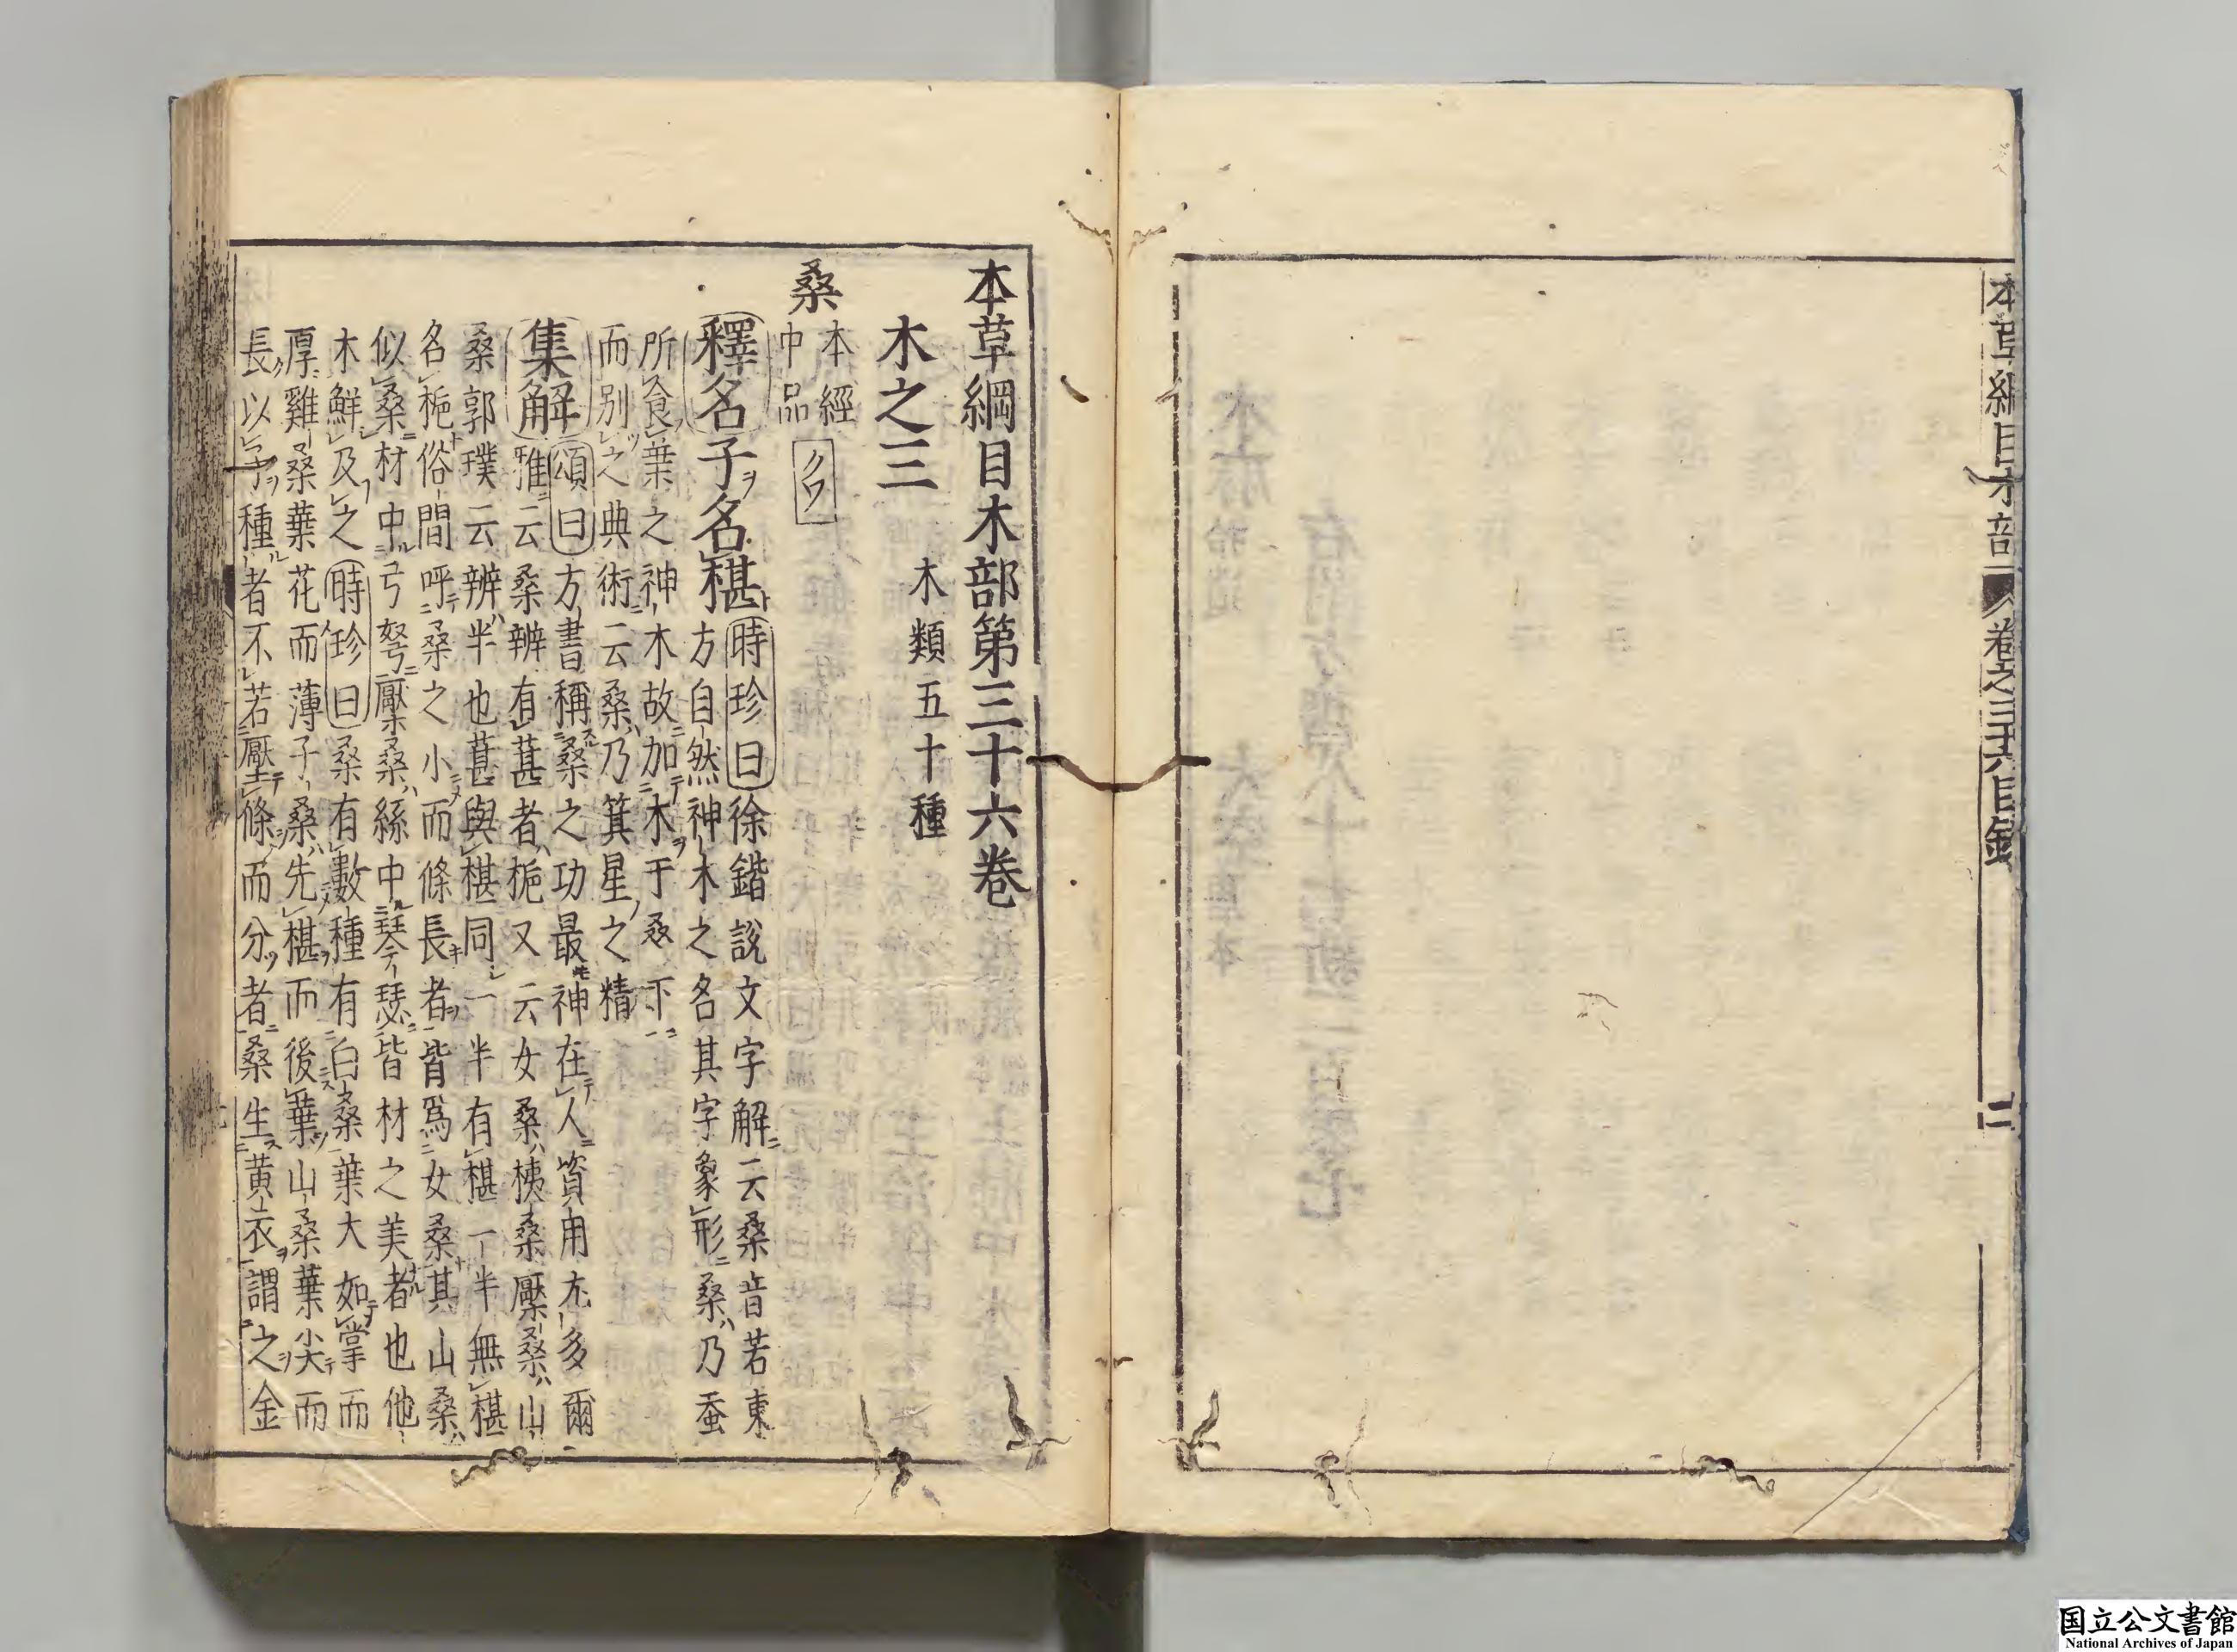 本草綱目木部
卷之三十六目録
二
本草綱目木部第三十六卷
木之三
木類五十種
桑
本經
中品
クワ
釋名子名椹
時珍曰徐鍇說文字解云桑音若東
方自然神木之名其字象形桑乃蚕
所食葉之神木故加木于叒下
而别之典術云桑乃箕星之精
集解
頌曰方書稱桑之功最神在人資用尤多爾
雅云桑辨有葚者梔又云女桑桋桑檿桑山
桑郭璞云辨半也葚與椹同一半有椹一半無椹
名梔俗間呼桑之小而條長者皆爲女桑其山桑
似桑材中弓弩檿桑絲中琴瑟皆材之美者也他
木鮮及之時珍曰桑有數種有白桑葉大如掌而
厚雞桑葉花而薄子桑先椹而後葉山桑葉尖而
長以子種者不若壓條而分者桑生黄衣謂之金
国立公文書館
National Archives of Japan